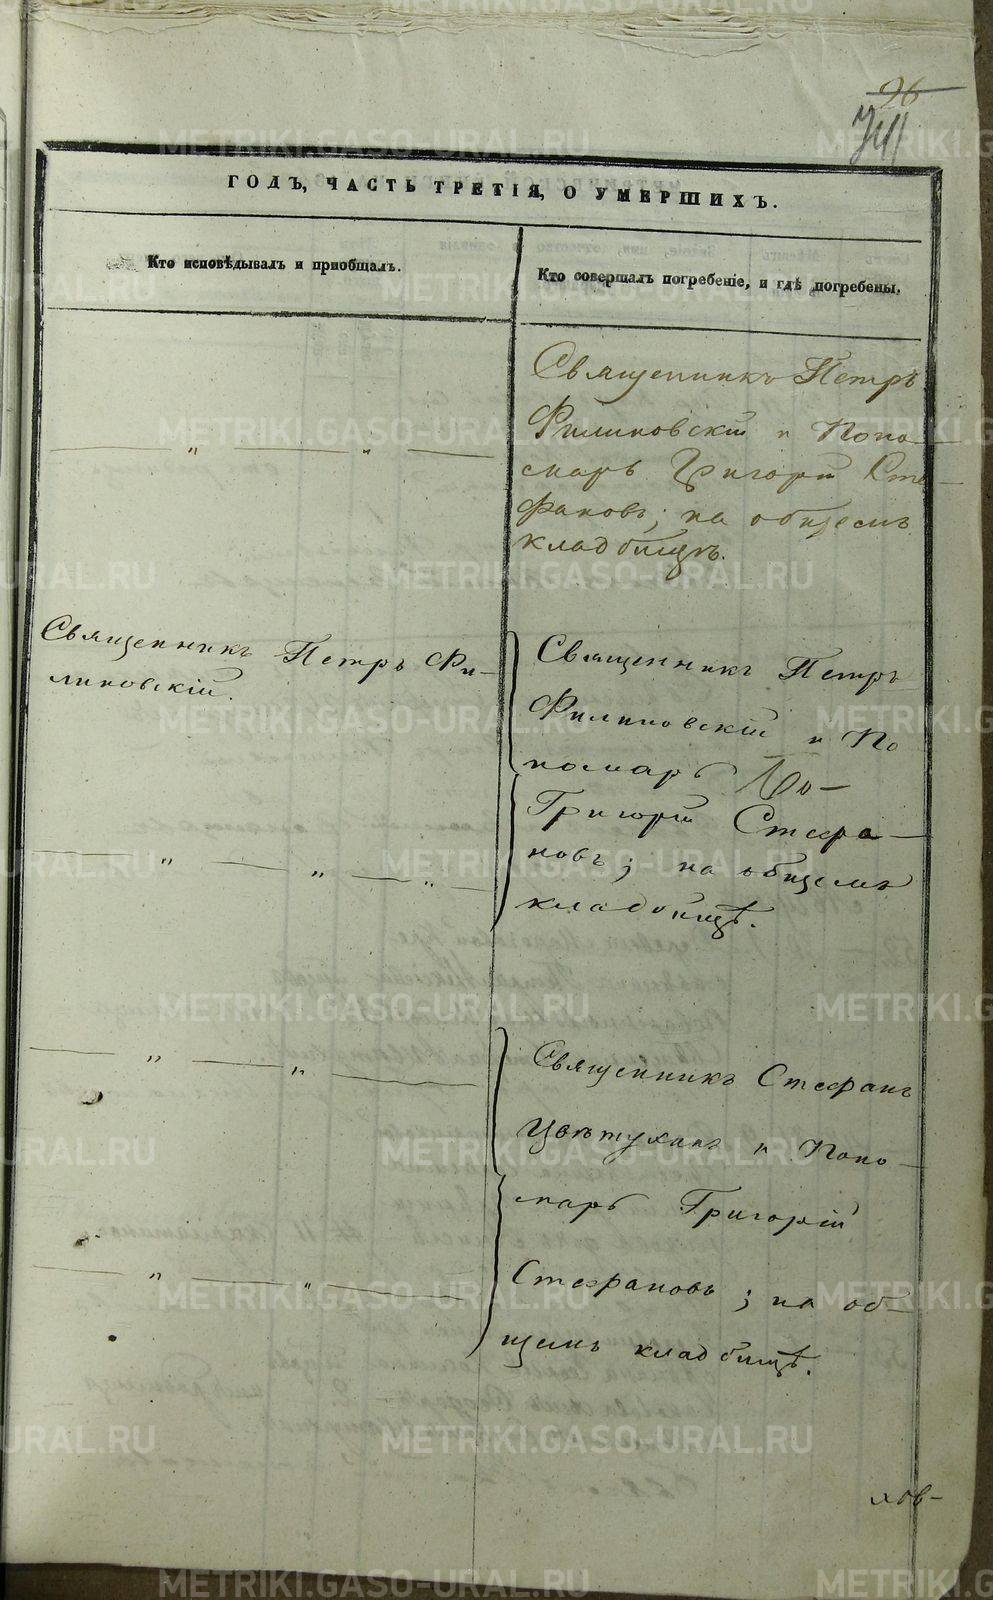 96
741
ГОДЪ, ЧАСТЬ ТРЕТІЯ, О УМЕРШИХЪ.
Кто исповѣдывалъ и пріобщалъ.
Кто совершалъ погребеніе, и гдѣ погребены.
Священникъ Петръ
Филиповскій и Поно-
марь Григорій Сте-
фановъ; на общемъ
кладбищѣ.
Священникъ Петръ Фи-
липовскій.
Священникъ Петръ
Филиповскій и По
номарь
Григорій Стефа-
новъ; на общемъ
кладбищѣ.
Священникъ Стефанъ
Цвѣтухинъ и Поно-
марь Григорій
Стефановъ; на об-
щемъ кладбищѣ.
METRIKI.GASO-URAL.RU